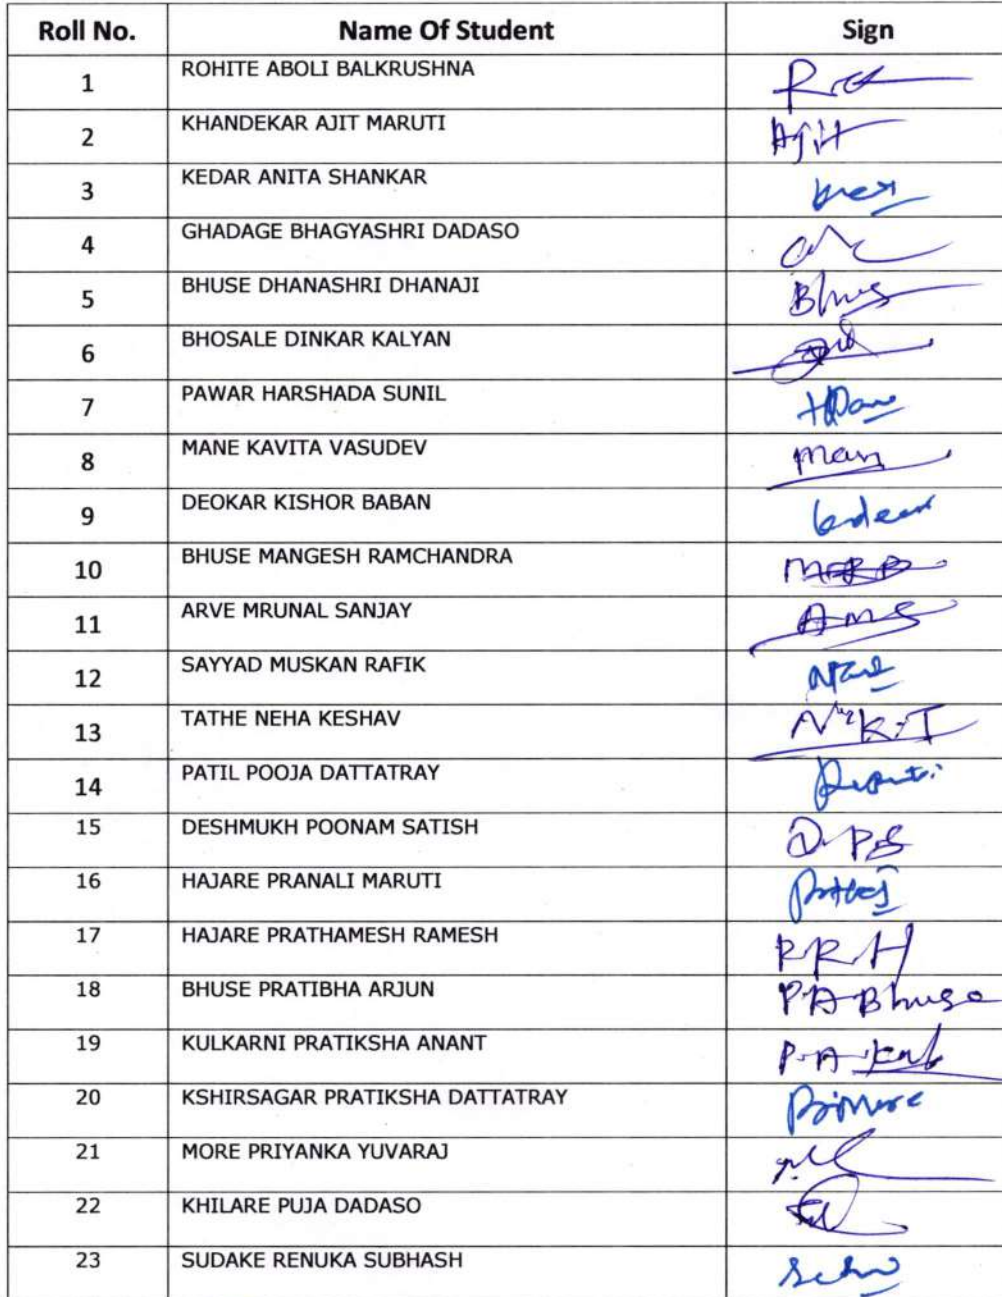 Roll No. Name Of Student Sign
1 ROHITE ABOLI BALKRUSHNA
2 KHANDEKAR AJIT MARUTI Ajit
3 KEDAR ANITA SHANKAR
4 GHADAGE BHAGYASHRI DADASO
5 BHUSE DHANASHRI DHANAJI
6 BHOSALE DINKAR KALYAN
7 PAWAR HARSHADA SUNIL
8 MANE KAVITA VASUDEV
9 DEOKAR KISHOR BABAN
10 BHUSE MANGESH RAMCHANDRA
11 ARVE MRUNAL SANJAY AMS
12 SAYYAD MUSKAN RAFIK
13 TATHE NEHA KESHAV
14 PATIL POOJA DATTATRAY
15 DESHMUKH POONAM SATISH D.PS
16 HAJARE PRANALI MARUTI
17 HAJARE PRATHAMESH RAMESH PRH
18 BHUSE PRATIBHA ARJUN P.A Bhuse
19 KULKARNI PRATIKSHA ANANT
20 KSHIRSAGAR PRATIKSHA DATTATRAY
21 MORE PRIYANKA YUVARAJ
22 KHILARE PUJA DADASO
23 SUDAKE RENUKA SUBHASH